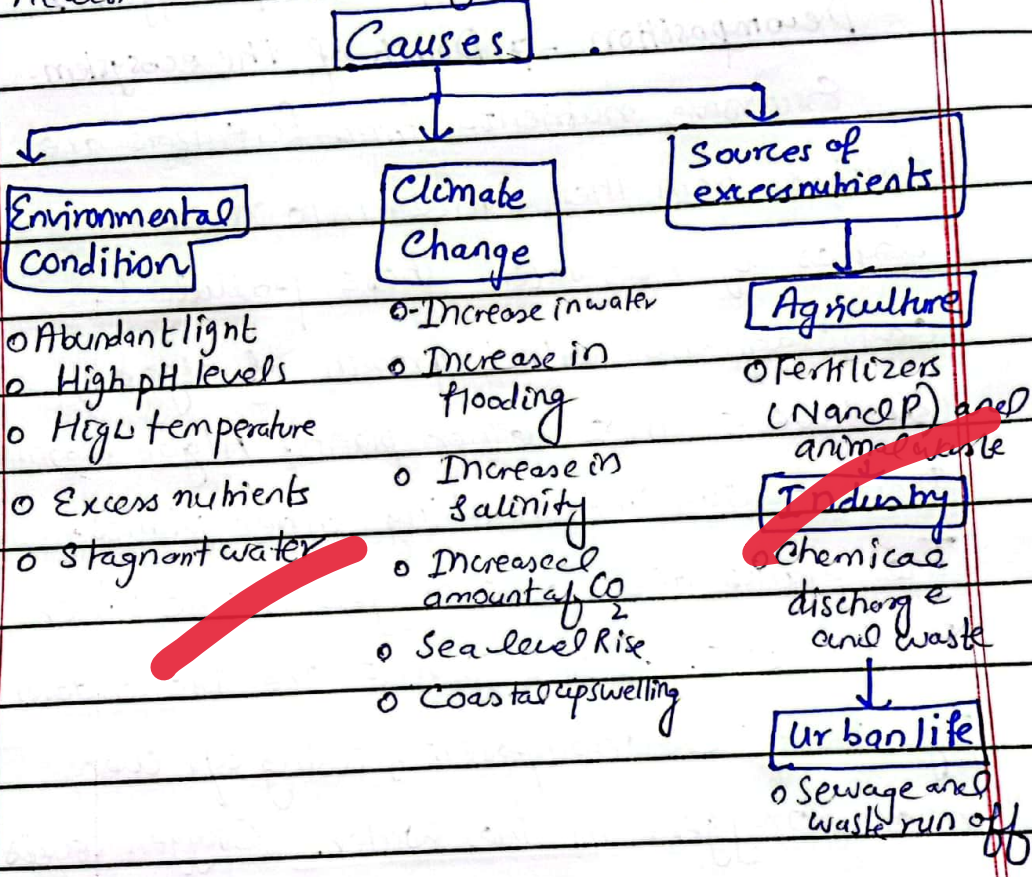 Causes.
Environmental
condition
o Abundant light
o High pH levels
o High temperature
o Excess nutrients
o Stagnant water
Climate
Change
o-Increase in water
o Increase in
flooding
o Increase in
salinity
o Increased
amount of CO2
o Sea level Rise.
o Coastal upswelling
Sources of
excess nutrients
Agriculture
o Fertilizers
(N and P) and
animal waste
Industry
o Chemical
discharge
and waste
Urban life
o Sewage and
waste run off